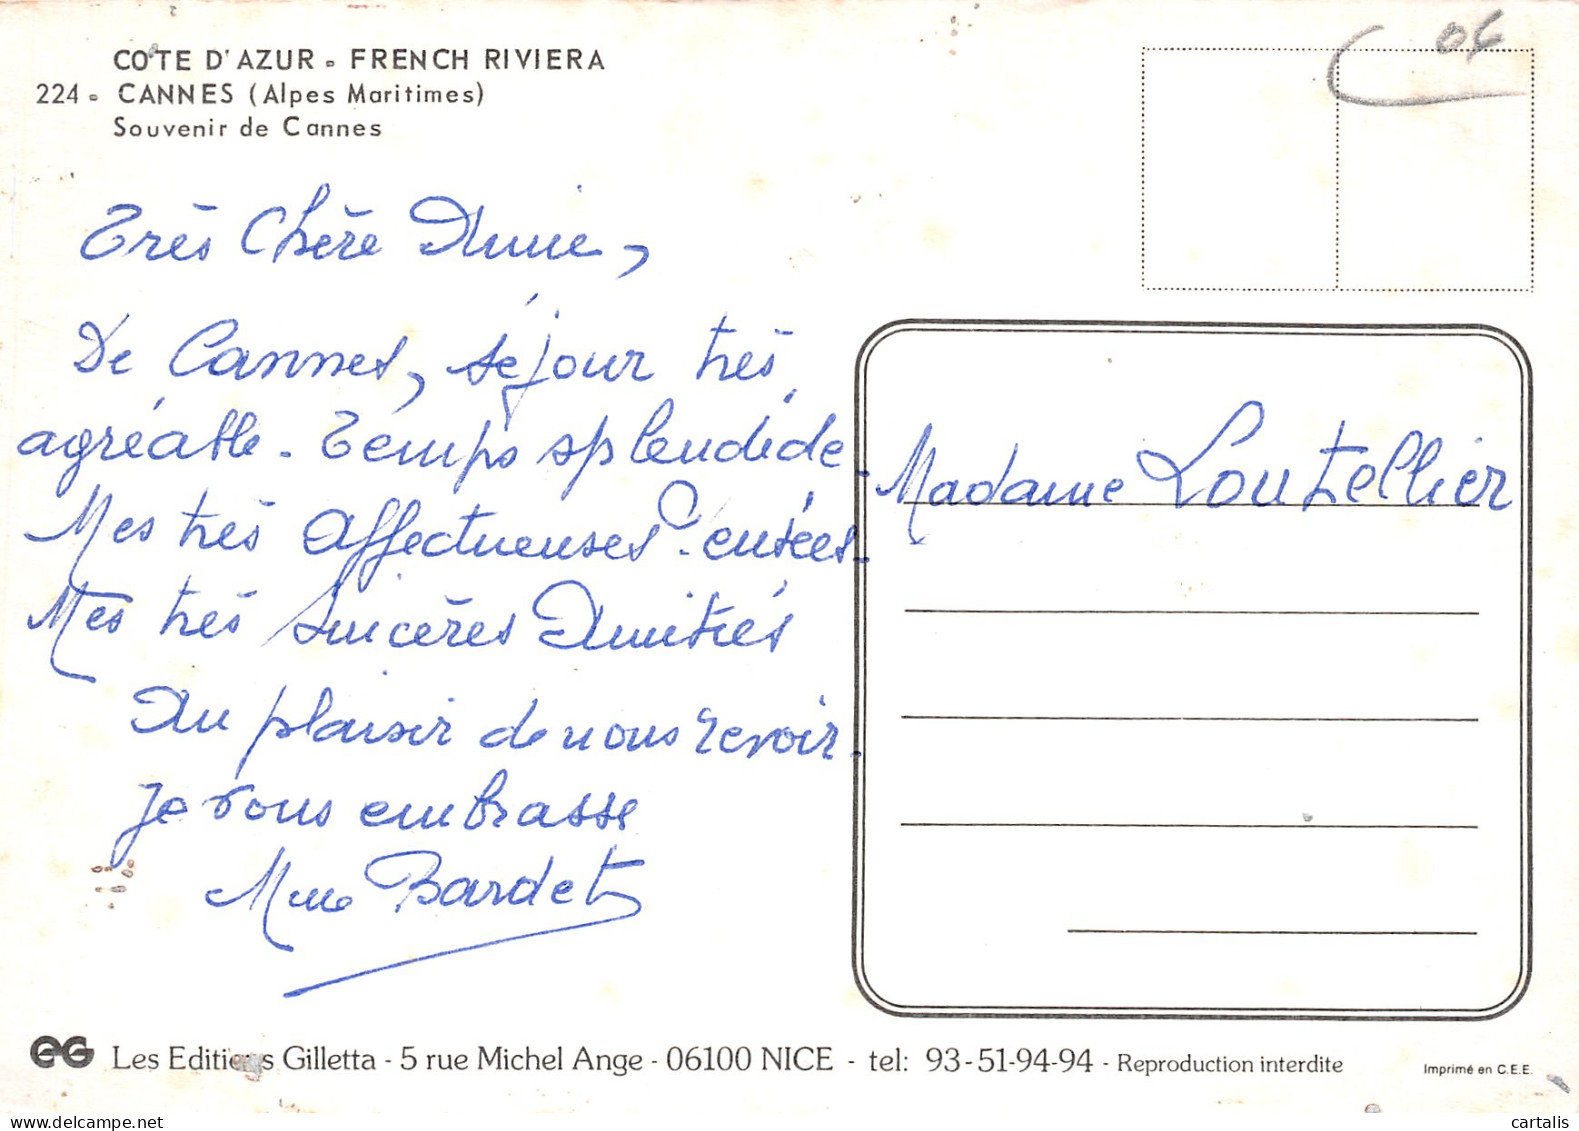 COTE D'AZUR - FRENCH RIVIERA
224 - CANNES (Alpes Maritimes)
Souvenir de Cannes
06
Très Chère Amie,
De Cannes, séjour très
agréable. Temps splendide.
Mes très affectueuses Pensées.
Mes très sincères Amitiés
Au plaisir de nous revoir.
Je vous embrasse
Mme Bardet
Madame Loutellier
EG Les Editions Gilletta - 5 rue Michel Ange - 06100 NICE - tel: 93-51-94-94 - Reproduction interdite
Imprimé en C.E.E.
cartalis